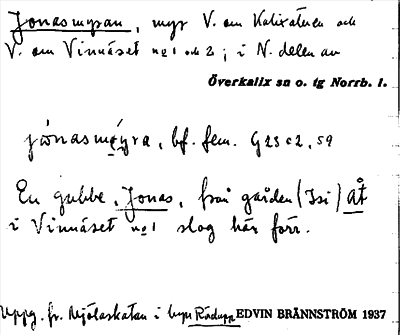 Jonasmyran, myr V. om Kalixälven och
V. om Vinnäset nº 1 och 2; i N. delen av
Överkalix sn o. tg Norrb. l.
jònasméyra, bf. fem. G 23 c 2, 59
En gubbe, Jonas, från gården (Isi) åt
i Vinnäset nº 1 slog här förr.
Uppg. fr. Mjölaskatan i byn Rödupp EDVIN BRÄNNSTRÖM 1937